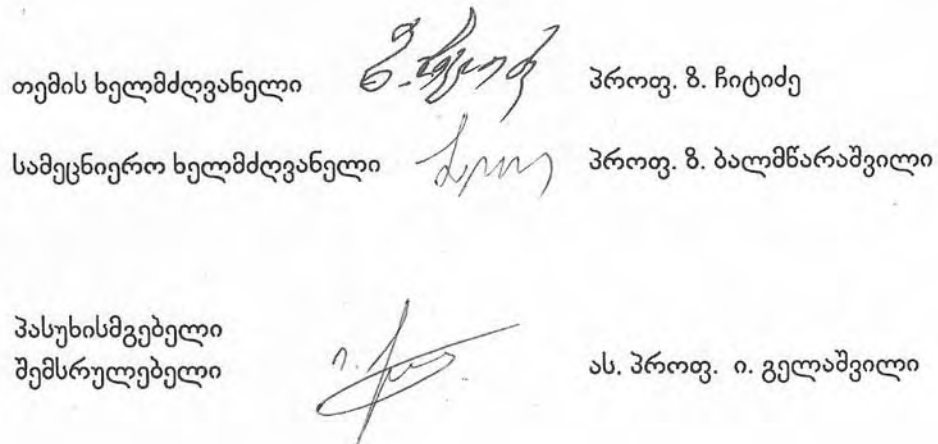 თემის ხელმძღვანელი პროფ. ზ. ჩიტიძე
სამეცნიერო ხელმძღვანელი პროფ. ზ. ბალმწარაშვილი
პასუხისმგებელი
შემსრულებელი ას. პროფ. ი. გელაშვილი